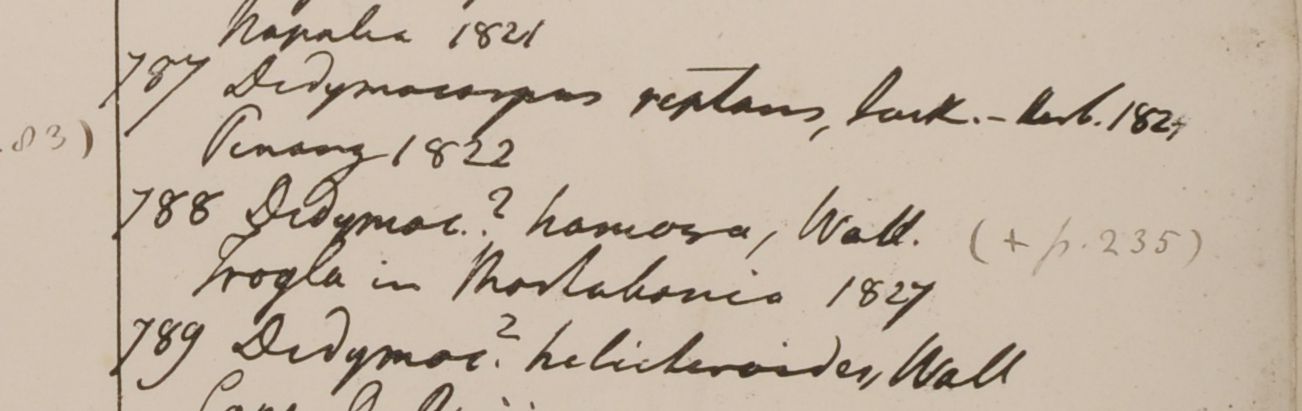 Napalia 1821
787 Didymocarpus reptans, Jack. - Herb. 1824
.83)
Penang 1822
788 Didymoc.? hamosa, Wall. (+ p. 235)
Trogla in Martabania 1827
789 Didymoc.? helicteroides, Wall